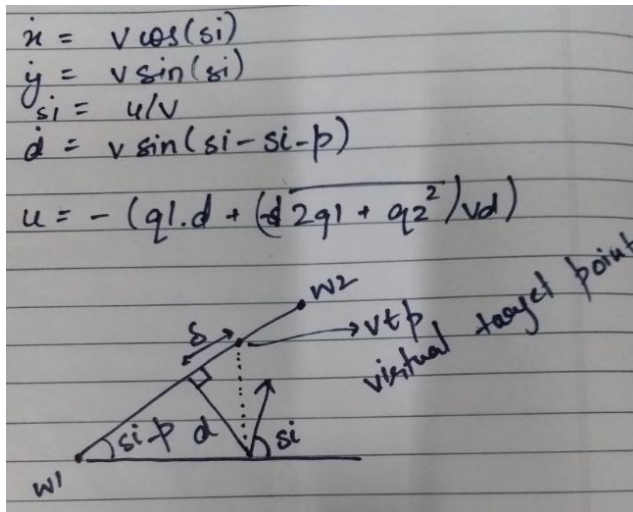 ẋ = v cos(si)
ẏ = v sin(si)
ṡi = u/v
ḋ = v sin(si - si-p)
u = - (q1.d + (√2q1 + q2²)vd)
w2
δ
vtp
virtual target point
si-p
d
si
w1